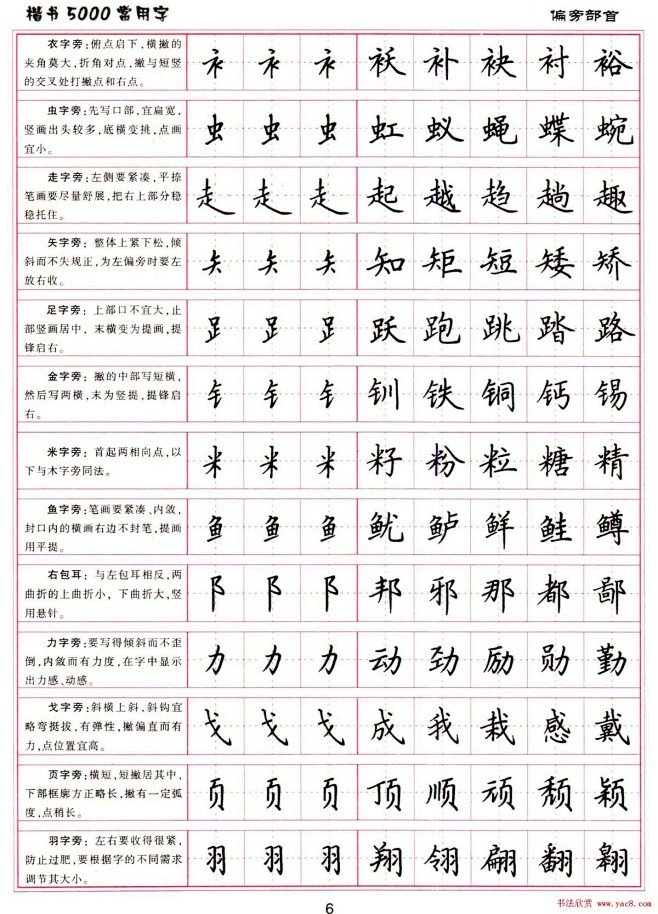 楷书5000常用字
偏旁部首
衣字旁：俯点启下，横撇的
夹角莫大，折角对点，撇与短竖
的交叉处打撇点和右点。
衤 衤 衤 袄 补 袂 衬 裕
虫字旁：先写口部，宜扁宽，
竖画出头较多，底横变挑，点画
宜小。
虫 虫 虫 虹 蚁 蝇 蝶 蜿
走字旁：左侧要紧凑，平捺
笔画要尽量舒展，把右上部分稳
稳托住。
走 走 走 起 越 趋 趟 趣
矢字旁：整体上紧下松，倾
斜而不失规正，为左偏旁时要左
放右收。
矢 矢 矢 知 矩 短 矮 矫
足字旁：上部口不宜大，止
部竖画居中，末横变为提画，提
锋启右。
𧾷 𧾷 𧾷 跃 跑 跳 踏 路
金字旁：撇的中部写短横，
然后写两横，末为竖提，提锋启
右。
钅 钅 钅 钏 铁 铜 钙 锡
米字旁：首起两相向点，以
下与木字旁同法。
米 米 米 籽 粉 粒 糖 精
鱼字旁：笔画要紧凑、内敛，
封口内的横画右边不封笔，提画
用平提。
鱼 鱼 鱼 鱿 鲈 鲜 鲑 鳟
右包耳：与左包耳相反，两
曲折的上曲折小，下曲折大，竖
用悬针。
阝 阝 阝 邦 邪 那 都 鄙
力字旁：要写得倾斜而不歪
倒，内敛而有力度，在字中显示
出力感、动感。
力 力 力 动 劲 励 勋 勤
戈字旁：斜横上斜，斜钩宜
略弯挺拔，有弹性，撇偏直而有
力，点位置宜高。
戈 戈 戈 成 我 栽 感 戴
页字旁：横短，短撇居其中，
下部框廓方正略长，撇有一定弧
度，点稍长。
页 页 页 顶 顺 顽 颓 颖
羽字旁：左右要收得很紧，
防止过肥，要根据字的不同需求
调节其大小。
羽 羽 羽 翔 翎 翩 翻 翱
6
书法欣赏 www.yac8.com